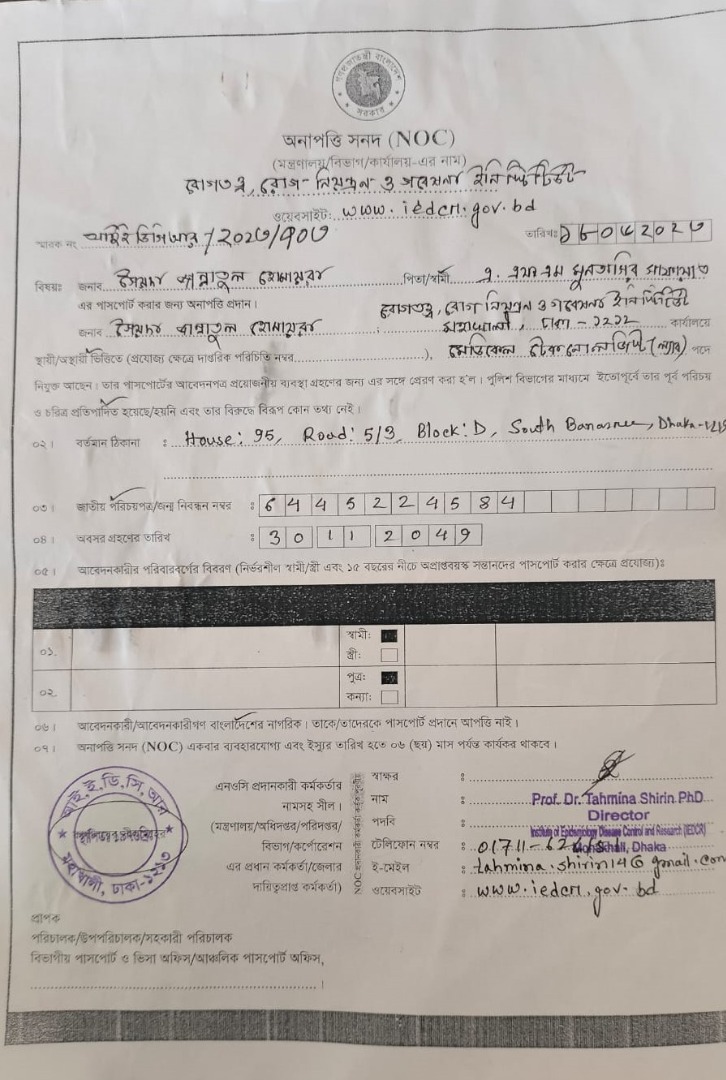 গণপ্রজাতন্ত্রী বাংলাদেশ
সরকার
অনাপত্তি সনদ (NOC)
(মন্ত্রণালয়/বিভাগ/কার্যালয়-এর নাম)
রোগতত্ত্ব, রোগ-নিয়ন্ত্রন ও গবেষনা ইনস্টিটিউট
ওয়েবসাইট: www.iedcr.gov.bd
স্মারক নং আইইডিসিআর/২০২৩/৭০৩ তারিখঃ
বিষয়ঃ জনাব সৈয়দা জান্নাতুল হোমায়রা পিতা/স্বামী এ. এফ এম মুনতাসির
এর পাসপোর্ট করার জন্য অনাপত্তি প্রদান।
জনাব সৈয়দা জান্নাতুল হোমায়রা রোগতত্ত্ব, রোগ নিয়ন্ত্রন ও গবেষনা ইনস্টিটিউট
মহাখালী, ঢাকা - ১২১২ কার্যালয়ে
স্থায়ী/অস্থায়ী ভিত্তিতে (প্রযোজ্য ক্ষেত্রে দাপ্তরিক পরিচিতি নম্বর..............), মেডিকেল টেকনোলজিস্ট (ল্যাব) পদে
নিযুক্ত আছেন। তার পাসপোর্টের আবেদনপত্র প্রয়োজনীয় ব্যবস্থা গ্রহণের জন্য এর সঙ্গে প্রেরণ করা হ'ল। পুলিশ বিভাগের মাধ্যমে ইতোপূর্বে তার পূর্ব পরিচয়
ও চরিত্র প্রতিপাদিত হয়েছে/হয়নি এবং তার বিরুদ্ধে বিরূপ কোন তথ্য নেই।
০২। বর্তমান ঠিকানা : House: 95, Road: 5/3, Block: D, South Banasree, Dhaka-1219
০৩। জাতীয় পরিচয়পত্র/জন্ম নিবন্ধন নম্বর : 6 4 4 5 2 2 4 5 8 4
০৪। অবসর গ্রহণের তারিখ : 3 0 1 1 2 0 4 9
০৫। আবেদনকারীর পরিবারবর্গের বিবরণ (নির্ভরশীল স্বামী/স্ত্রী এবং ১৫ বছরের নীচে অপ্রাপ্তবয়স্ক সন্তানদের পাসপোর্ট করার ক্ষেত্রে প্রযোজ্য)ঃ
০১. স্বামী:
স্ত্রী:
০২ পুত্র:
কন্যা:
০৬। আবেদনকারী/আবেদনকারীগণ বাংলাদেশের নাগরিক। তাকে/তাদেরকে পাসপোর্ট প্রদানে আপত্তি নাই।
০৭। অনাপত্তি সনদ (NOC) একবার ব্যবহারযোগ্য এবং ইস্যুর তারিখ হতে ০৬ (ছয়) মাস পর্যন্ত কার্যকর থাকবে।
আই.ই.ডি.সি.আর
মহাখালী, ঢাকা-১২১২
এনওসি প্রদানকারী কর্মকর্তার
নামসহ সীল।
(মন্ত্রণালয়/অধিদপ্তর/পরিদপ্তর/
বিভাগ/কর্পোরেশন
এর প্রধান কর্মকর্তা/জেলার
দায়িত্বপ্রাপ্ত কর্মকর্তা)
স্বাক্ষর :
নাম : Prof. Dr. Tahmina Shirin PhD
পদবি : Director
Institute of Epidemiology Disease Control and Research (IEDCR)
Mohakhali, Dhaka
টেলিফোন নম্বর : 01711-
ই-মেইল : tahmina.shirin14@gmail.com
ওয়েবসাইট : www.iedcr.gov.bd
প্রাপক
পরিচালক/উপপরিচালক/সহকারী পরিচালক
বিভাগীয় পাসপোর্ট ও ভিসা অফিস/আঞ্চলিক পাসপোর্ট অফিস,